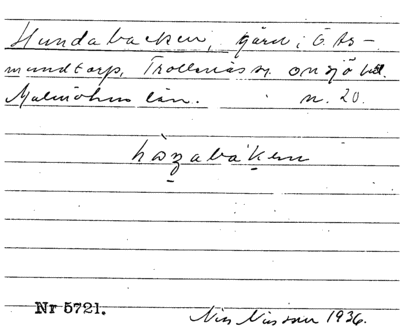 Hundabacken, gård i Ö. As-
mundtorp, Trollenäs sn. Onsjö hd.
Malmöhus län. n. 20.
hòṉabáḵen
Nr 5721.
Nils Nilsson 1936.